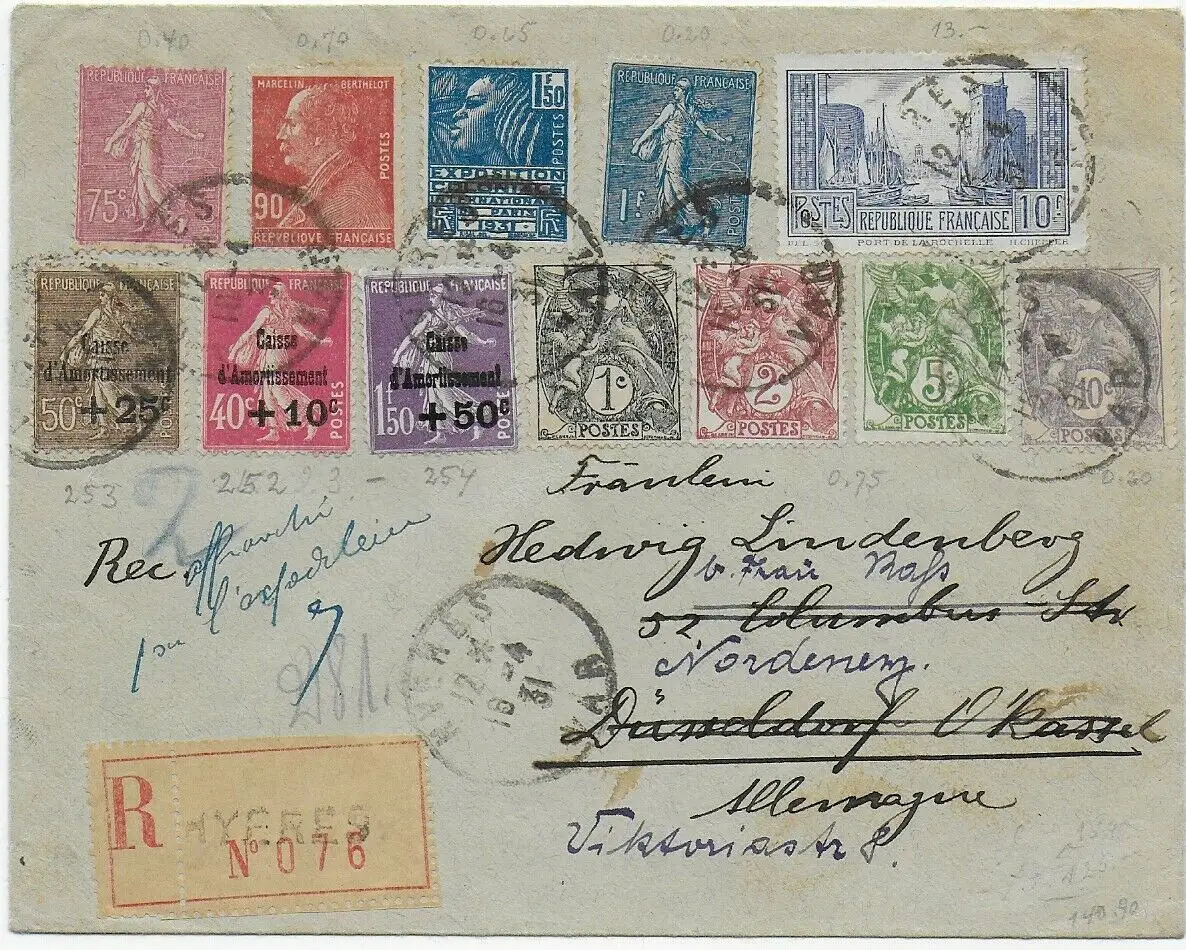 0.40
0.70
0.65
0.20
13.-
REPUBLIQUE FRANÇAISE
75c
MARCELIN BERTHELOT
POSTES
90c
REPUBLIQUE FRANÇAISE
1F50
POSTES
EXPOSITION
COLONIALE
INTERNATIONALE
PARIS
1931
REPUBLIQUE FRANÇAISE
1F
POSTES
POSTES REPUBLIQUE FRANÇAISE 10F
PORT DE LA ROCHELLE H.CHEFFER
REPUBLIQUE FRANÇAISE
Caisse
d'Amortissement
50c +25c
REPUBLIQUE FRANÇAISE
Caisse
d'Amortissement
40c +10c
POSTES
REPUBLIQUE FRANÇAISE
Caisse
d'Amortissement
1F50 +50c
POSTES
1c
POSTES
2c
POSTES
5c
POSTES
10c
POSTES
253
252
3.-
254
0.75
0.60
2
Fräulein
Hedwig Lindenberg
b. Frau Rass
52 Columbus Str.
Nordeney.
Düsseldorf O'Kassel
Allemagne
Viktoriastr 8.
Rec.
affranchi
par l'expéditeur
281.
HYERES
12 *
16 -4
31
VAR
R
HYERES
No 076
140.90